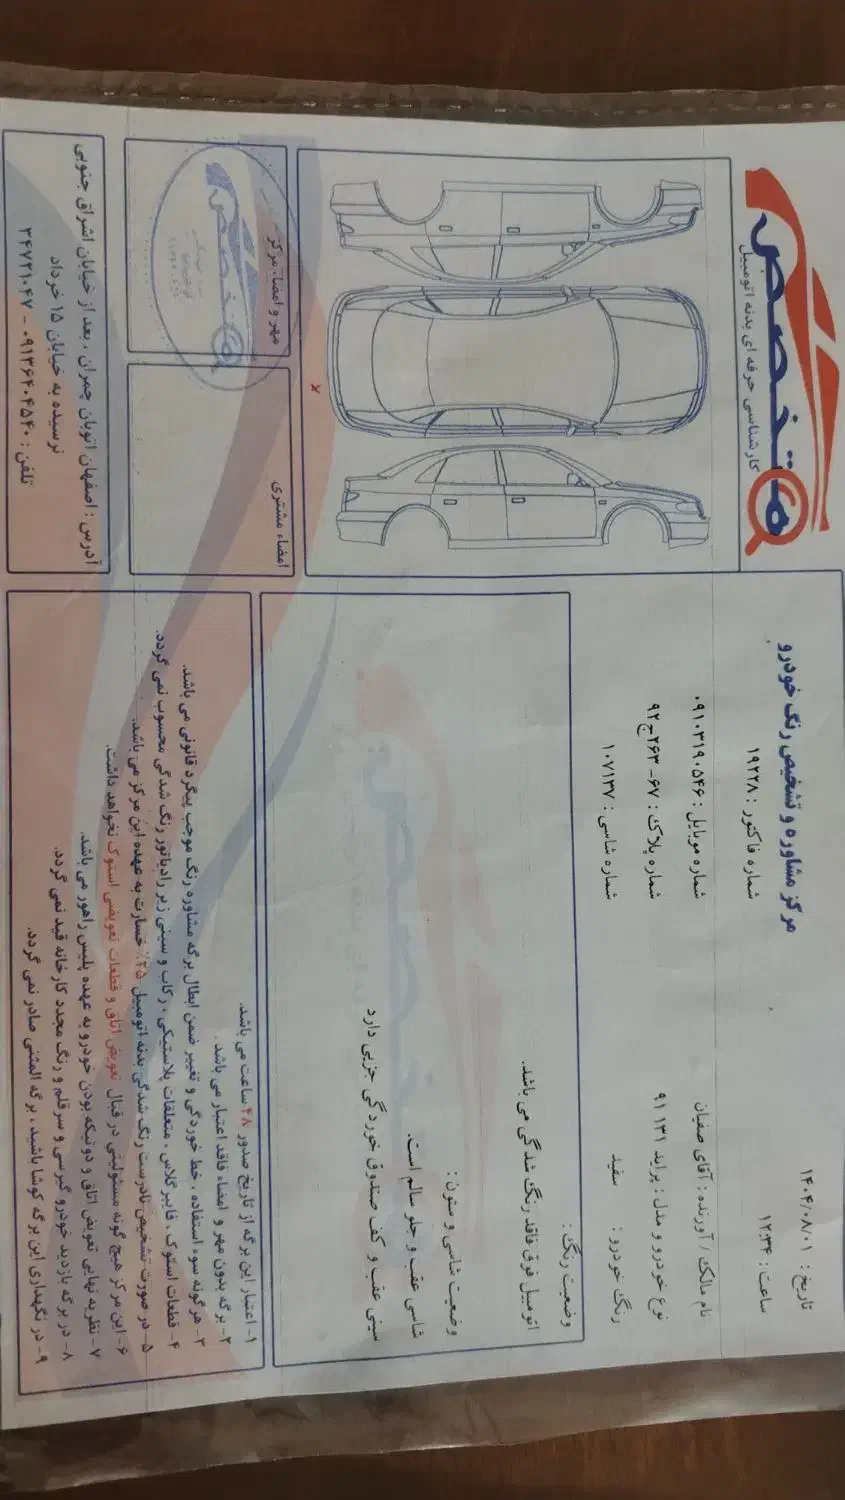 متخصص
کارشناسی حرفه ای بدنه اتومبیل
مرکز مشاوره و تشخیص رنگ خودرو
تاریخ : ۱۴۰۴/۰۸/۰۱
شماره فاکتور : ۱۹۲۲۸
ساعت : ۱۲:۳۴
نام مالک / آورنده : آقای صفیان
شماره موبایل : ۰۹۱۰۳۱۹۰۵۴۶
نوع خودرو و مدل : پراید ۱۳۱ ۹۱
شماره پلاک : ۶۷-۲۶۳ج۹۲
رنگ خودرو : سفید
شماره شاسی : ۱۰۷۱۳۷
وضعیت رنگ :
اتومبیل فوق فاقد رنگ شدگی می باشد.
وضعیت شاسی و ستون :
شاسی عقب و جلو سالم است.
سینی عقب و کف صندوق خوردگی جزیی دارد
x
مهر و امضاء مرکز
امضاء مشتری
۱- اعتبار این برگه از تاریخ صدور ۴۸ ساعت می باشد.
۲- برگه بدون مهر و امضاء فاقد اعتبار می باشد .
۳- هرگونه سوء استفاده ، خط خوردگی و تغییر ضمن ابطال برگه مشاوره رنگ موجب پیگرد قانونی می باشد.
۴- قطعات استوک ، فایبرگلاس ، متعلقات پلاستیکی ، رکاب و سینی زیر رادیاتور رنگ شدگی محسوب نمی گردد.
۵- در صورت تشخیص نادرست رنگ شدگی بدنه اتومبیل ۲۵٪ خسارت به عهده این مرکز می باشد.
۶- این مرکز هیچ گونه مسئولیتی در قبال تعویض اتاق و قطعات تعویضی استوک نخواهد داشت.
۷- نظریه نهایی تعویض اتاق و دوتیکه بودن خودرو به عهده پلیس راهور می باشد.
۸- در برگه بازدید خودرو گیرسی و سرقلم و رنگ مجدد کارخانه قید نمی گردد.
۹- در نگهداری این برگه کوشا باشید ، برگه المثنی صادر نمی گردد.
آدرس : اصفهان اتوبان چمران ، بعد از خیابان اشراق جنوبی
نرسیده به خیابان ۱۵ خرداد
تلفن : ۰۹۱۳۶۴۰۴۵۴۰ - ۳۴۷۳۱۰۴۷